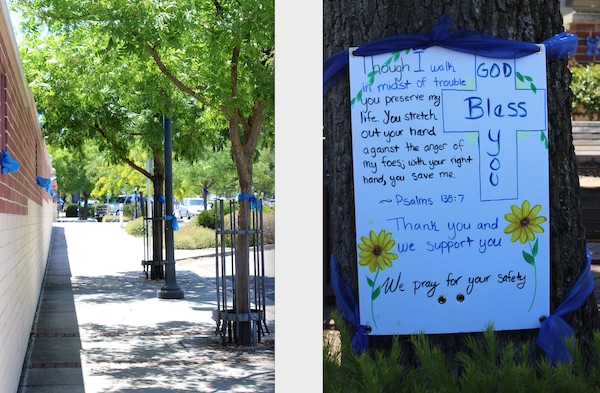 Though I walk
in midst of trouble
you preserve my
life. You stretch
out your hand
against the anger of
my foes; with your right
hand, you save me.
~ Psalms 138:7
GOD
Bless
you
Thank you and
we support you
We pray for your safety